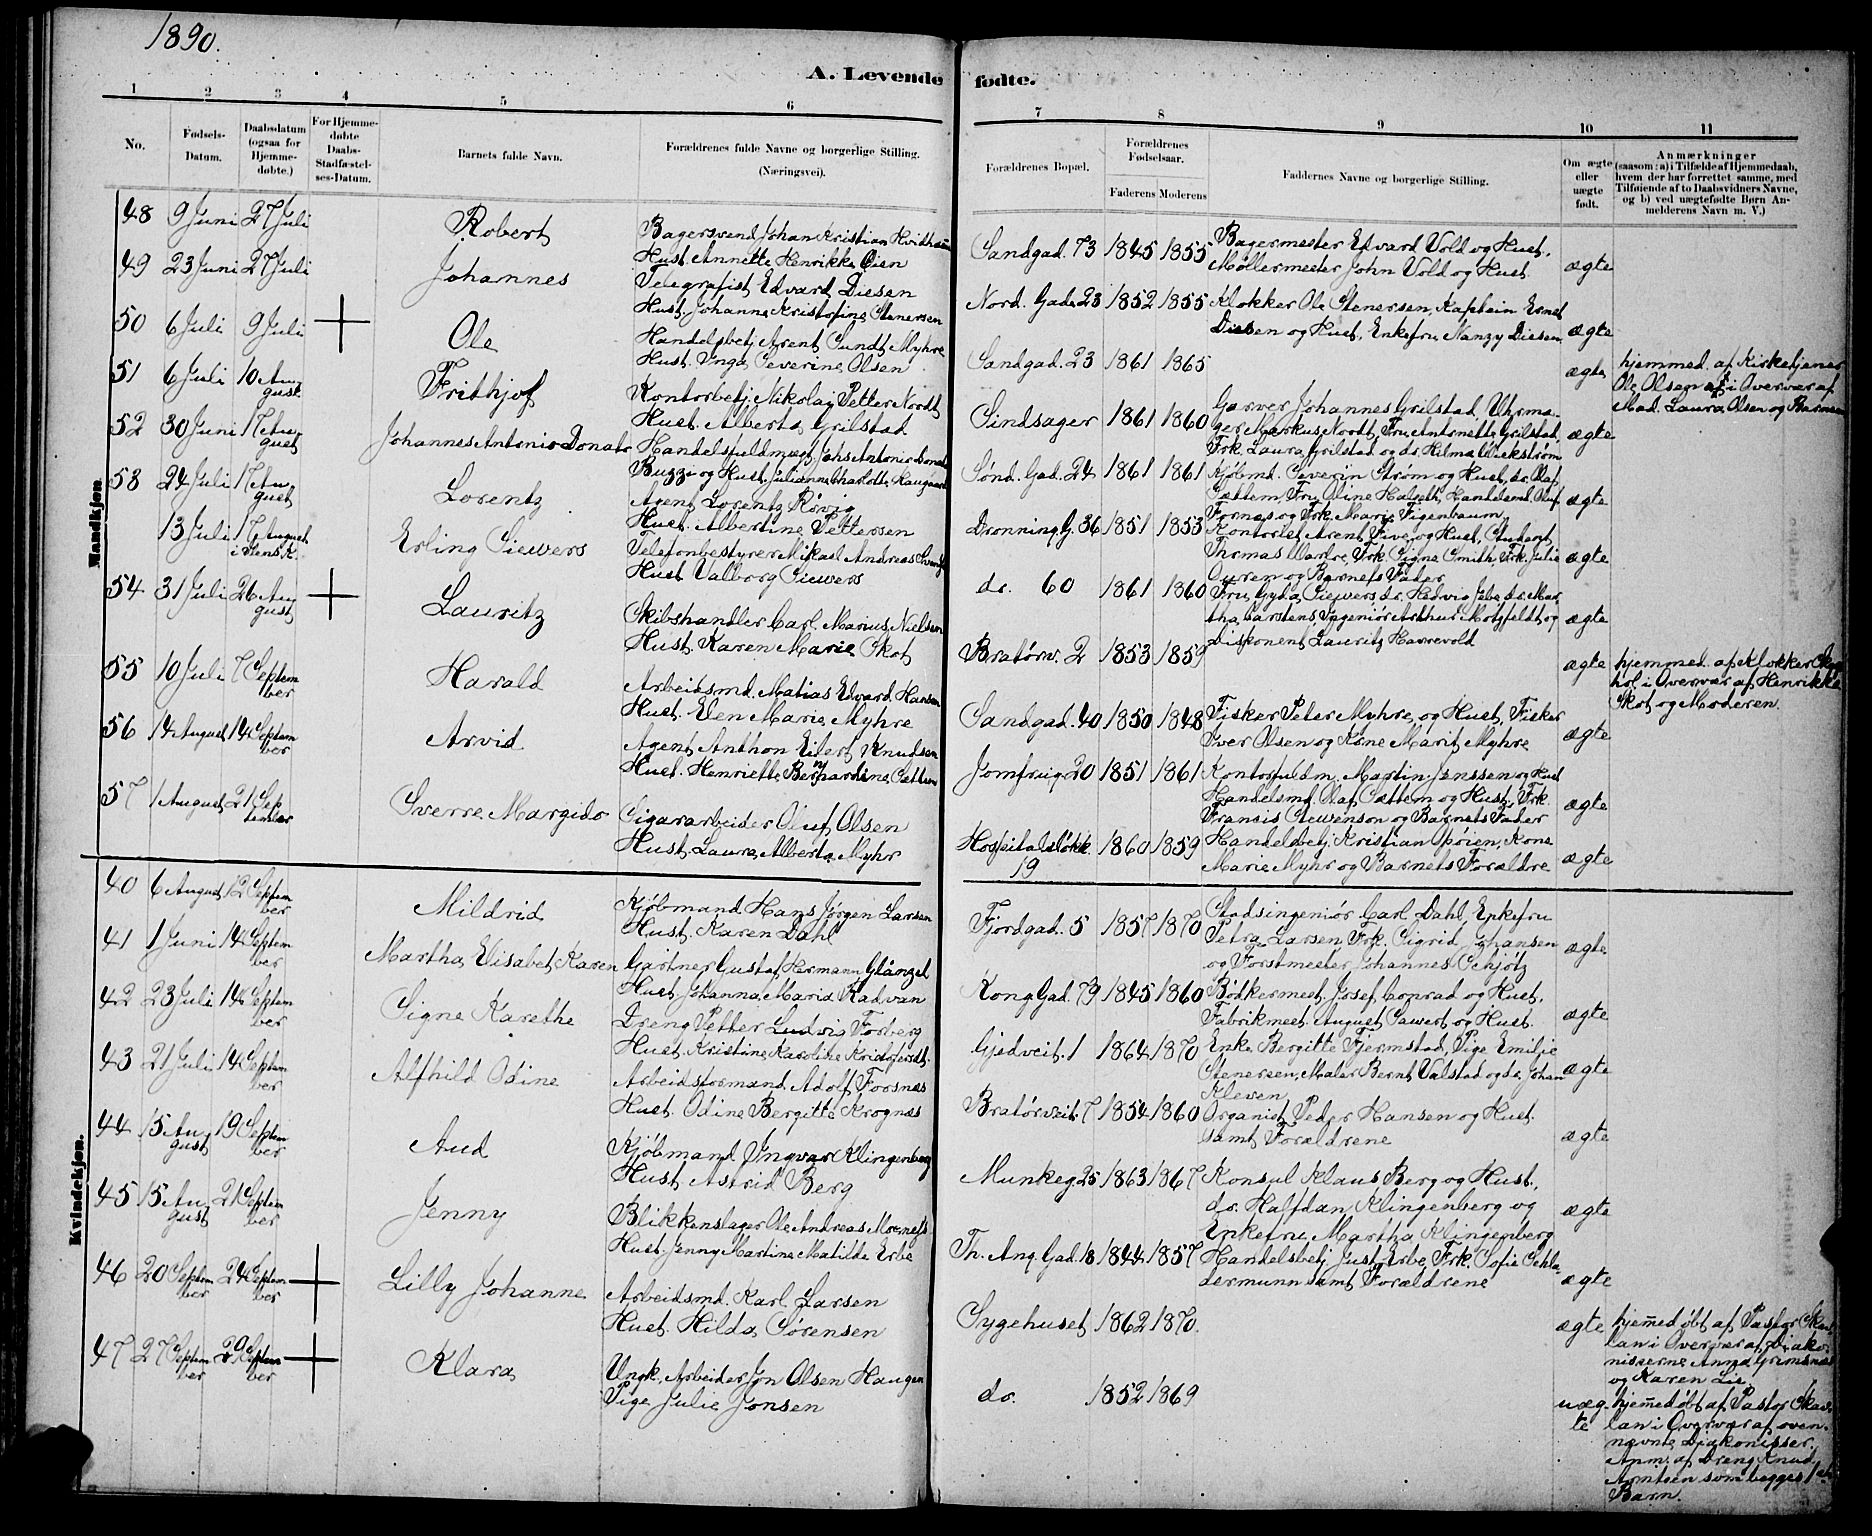 1890.
A. Levende fødte.
1 2 3 4 5 6 7 8 9 10 11
No.
Fødsels-Datum.
Daabsdatum (ogsaa for Hjemme-døbte.)
For Hjemme-døbte Daabs-Stadfæstel-ses-Datum.
Barnets fulde Navn.
Forældrenes fulde Navne og borgerlige Stilling. (Næringsvei).
Forældrenes Bopæl.
Forældrenes Fødselsaar.
Faderens Moderens
Faddernes Navne og borgerlige Stilling.
Om ægte eller uægte født.
Anmærkninger
(saasom: a) i Tilfælde af Hjemmedaab,
hvem der har forrettet samme, med
Tilføiende af to Daabsvidners Navne,
og b) ved uægtefødte Børn An-
melderens Navn m. V.)
Mandkjøn.
48 9 Juni 27 Juli Robert
Bagersvend Johan Kristian
Hust. Annette Henrikke Oien
Sandgad. 73 1845 1855
Bagermester Edvard Vold og Hust.
Møllermester John Vold og Hust.
ægte
49 23 Juni 27 Juli Johannes
Telegrafist Edvard Diesen
Hust. Johanne Kristofine Stenersen
Nord. Gade 23 1852 1855
Klokker Ole Stenersen, Kaptein Ernst
Diesen og Hust, Enkefru Nanzy Diesen
ægte
50 6 Juli 9 Juli Ole
Handelsbetj Arent Sundt Myhre
Hust. Inga Severine Olsen
Sandgad. 23 1861 1865
ægte
hjemmed. af Kirketjener
Ole Olsen i Overvær af
Mad. Laura Olsen og
51 6 Juli 10 August Frithjof
Kontorbetj. Nikolai Petter Nordt
Hust. Alberta Grilstad
Sindsager 1861 1860
Garver Johannes Grilstad, Uhrma-
ger Markus Nordt, Fru Antonette Grilstad,
Frk. Laura Grilstad og do. Hilma Wekstrøm
ægte
52 30 Juni 17 August Johannes Antonio Donato
Handelsfuldmægt. Johs Antonio Donato
Buzzi og Hust. Julianne Charlotte Haugaard
Sønd. Gad. 24 1861 1861
Kjøbmd. Severin Strøm og Hust, do. Olaf
Sættem, Fru Oline Halseth, Handelsmd Oluf
Fornes og Frk. Marie Figenbaum
ægte
53 24 Juli 17 August Lorentz
Agent Lorentz Rövig
Hust. Albertine Pettersen
Dronning. G. 36 1851 1853
Kontorist Arent Five og Hust, Student
Thomas Wardre, Frk Signe Smith, Frk. Julie
Ouren og Barnets Fader
ægte
13 Juli 17 August Erling Siewers
Telefonbestyrer Mikael Andreas
Hust Valborg Siewers
do. 60 1861 1860
Fru Gyda Siewers do. Hedvig Jebe, do. Mar-
tha Carstens, Ingeniør Arthur Motzfeldt og
Diskonent Lauritz Havrevold
ægte
54 31 Juli 26 August Lauritz
Skibshandler Carl Marius Nielsen
Hust. Karen Marie Skot
Bratørv. 2 1853 1859
ægte
hjemmed. af Klokker
i Overvær af Henrikke
Skot og Moderen
55 10 Juli 7 September Harald
Arbeidsmd. Matias Edvard Hansen
Hust. Elen Marie Myhre
Sandgad. 40 1850 1848
Fisker Peter Myhre og Hust, Fisker
Iver Olsen og Kone Marit Myhre
ægte
56 14 August 14 September Arvid
Agent Anthon Eilert Knudsen
Hust. Henriette Bernhardine Sættem
Jomfrug. 20 1851 1861
Kontorfuldm. Martin Janssen og Hust
Handelsmd. Olaf Sættem og Hust, Frk.
Francis Stewenson og Barnets Fader
ægte
57 1 August 21 September Sverre Margido
Cigararbeider Oluf Olsen
Hust. Laura Alberta Myhr
Hospitalsløkk. 19 1860 1859
Handelsbetj. Kristian Opøien, Kone
Marie Myhr og Barnets Forældre
ægte
Kvindekjøn.
40 6 August 12 September Mildrid
Kjøbmand Hans Jørgen Larsen
Hust. Karen Dahl
Fjordgad. 5 1857 1870
Stadsingeniør Carl Dahl, Enkefru
Petra Larsen Frk. Sigrid Johansen
og Forstmester Johannes Schjøtz
ægte
41 1 Juni 14 September Martha Elisabet Karen
Gartner Gustaf Hermann Glänzel
Hust. Johanna Maria Radvan
Kong Gad. 79 1845 1860
Bødkermest. Josef Conrad og Hust.
Fabrikmest. August Sawert og Hust.
ægte
42 23 Juli 14 September Signe Karethe
Dreng Petter Ludvig Forberg
Hust. Kristine Karoline Kristofersdt.
Gjedveit. 1 1864 1870
Enke Bergitte Fjermstad, Pige Emilie
Stenersen, Maler Bernt Valstad og do. Johan
Kleven
ægte
43 21 Juli 14 September Alfhild Odine
Arbeidsformand Adolf Forsnæs
Hust. Odine Bergitte Krognæs
Bratørveit. 7 1854 1860
Organist Peder Hansen og Hust.
samt Forældrene
ægte
44 15 August 19 September Aud
Kjøbmand Ingvar Klingenberg
Hust. Astrid Berg
Munkeg. 25 1863 1867
Konsul Klaus Berg og Hust,
do. Halfdan Klingenberg og
Enkefru Martha Klingenberg
ægte
45 15 August 21 September Jenny
Blikkenslager Ole Andreas Morenæss
Hust. Jenny Martine Matilde Erbe
Th. Ang. Gad. 18 1844 1857
Handelsbetj. Just Erbe, Frk. Sofie Schla-
dermunn samt Forældrene
ægte
46 20 September 24 September Lilly Johanne
Arbeidsmd. Karl Larsen
Hust. Hilda Sørensen
Sygehuset 1862 1870.
ægte
hjemmedøbt af Pastor Skav-
lan i Overvær af Diako-
nisserne Anna Grimsnæs
og Karen Lie.
47 27 September 29 September Klara
Ungk. Arbeider Jon Olsen Haugen
Pige Julie Jonsen
do. 1852 1869
uægte
hjemmedøbt af Pastor Skav-
lan i Overvær af oven-
nævnte Diakonisser.
Anm. af Dreng Knud
Arntsen som begges 1ste
Barn.